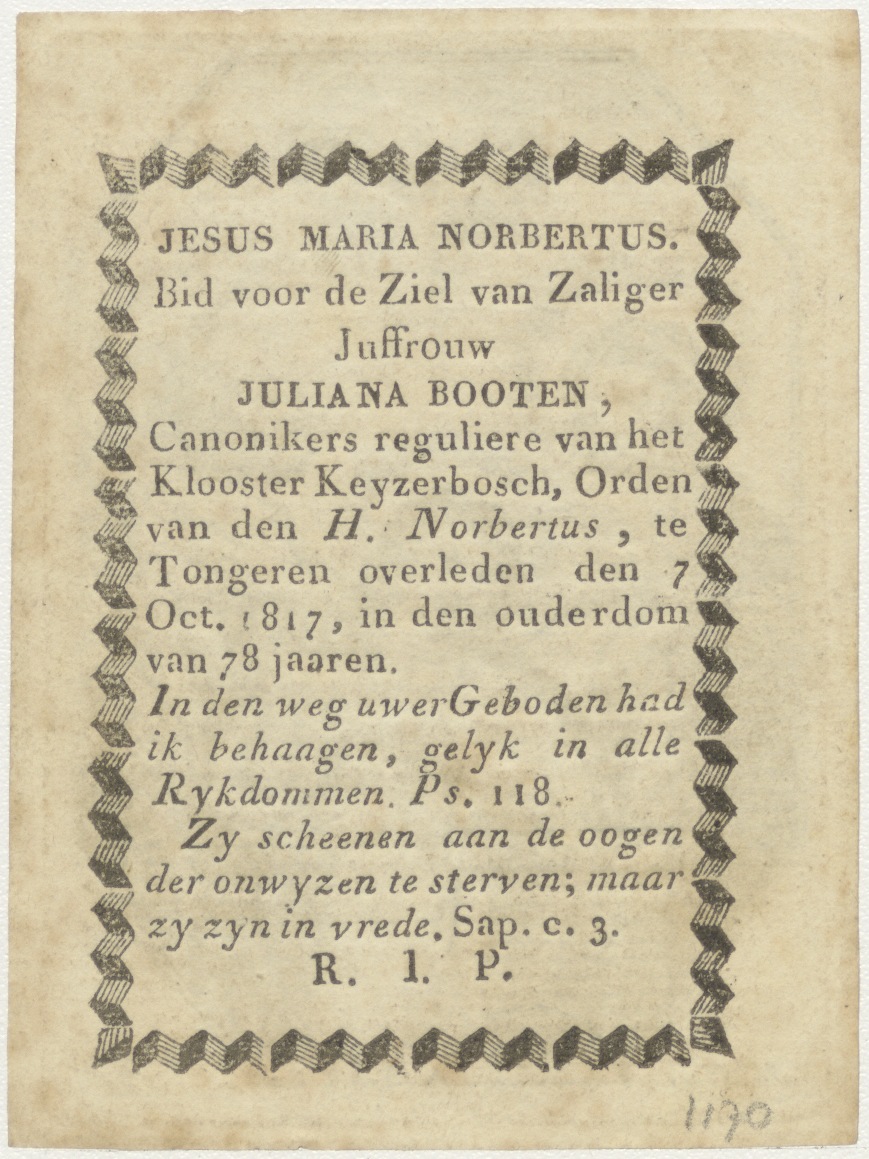 JESUS MARIA NORBERTUS.
Bid voor de Ziel van Zaliger
Juffrouw
JULIANA BOOTEN,
Canonikers reguliere van het
Klooster Keyzerbosch, Orden
van den H. Norbertus, te
Tongeren overleden den 7
Oct. 1817, in den ouderdom
van 78 jaaren.
In den weg uwer Geboden had
ik behaagen, gelyk in alle
Rykdommen. Ps. 118.
Zy scheenen aan de oogen
der onwyzen te sterven; maar
zy zyn in vrede. Sap. c. 3.
R. I. P.
1170